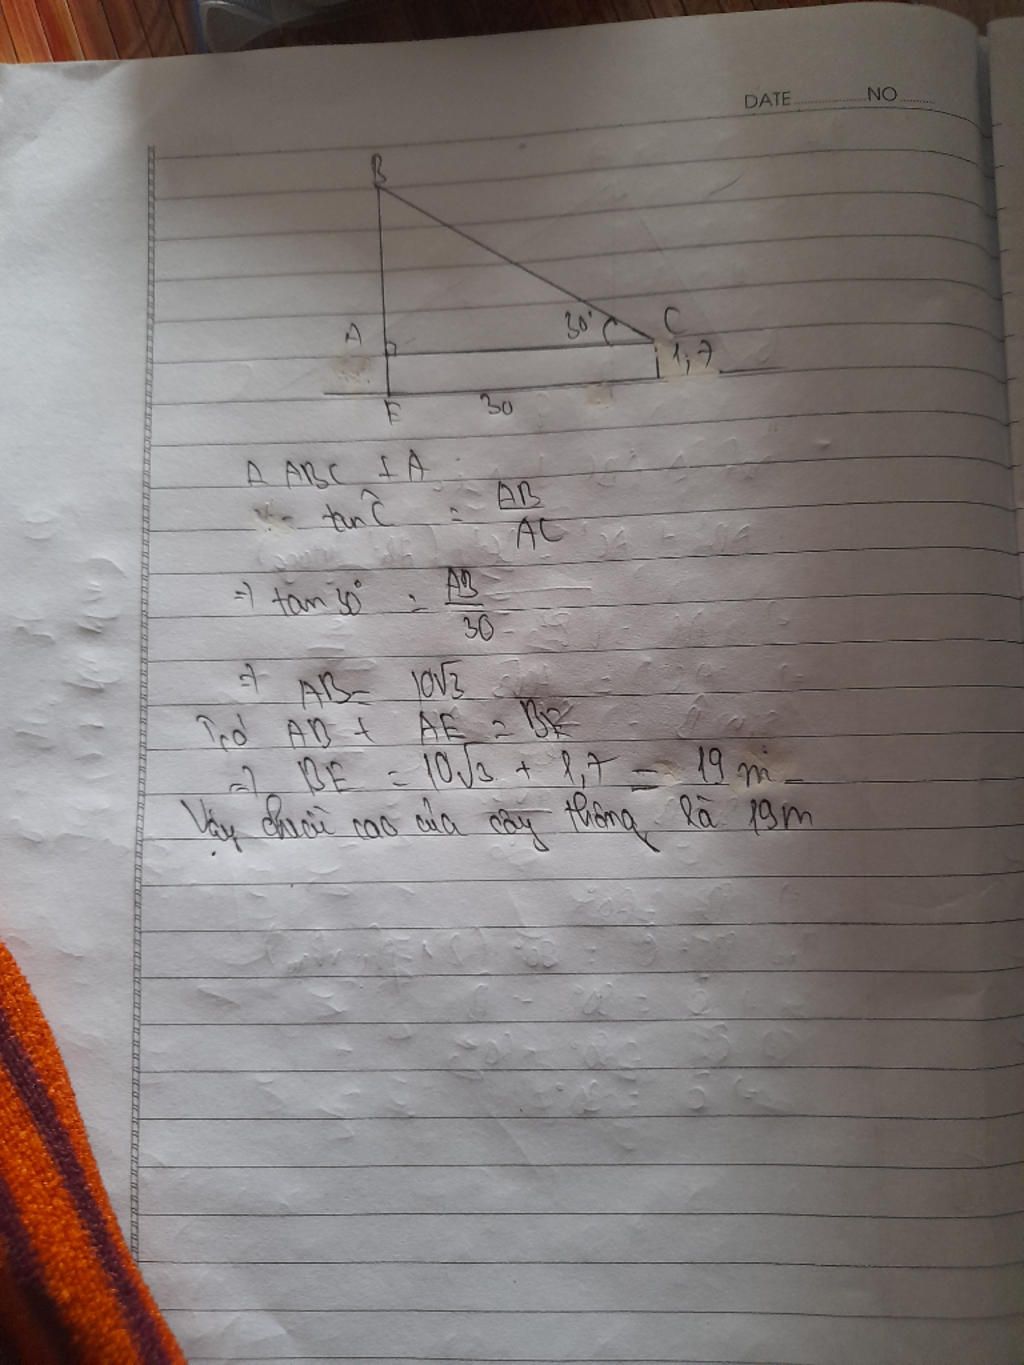 DATE NO
B
A 30° C
1,7
E 30
Δ ABC ⊥ A
tan Ĉ = AB/AC
=> tan 30° = AB/30
=> AB = 10√3
AB + AE = BE
=> BE = 10√3 + 1,7 = 19 m
Vậy chiều cao của cây thông là 19m